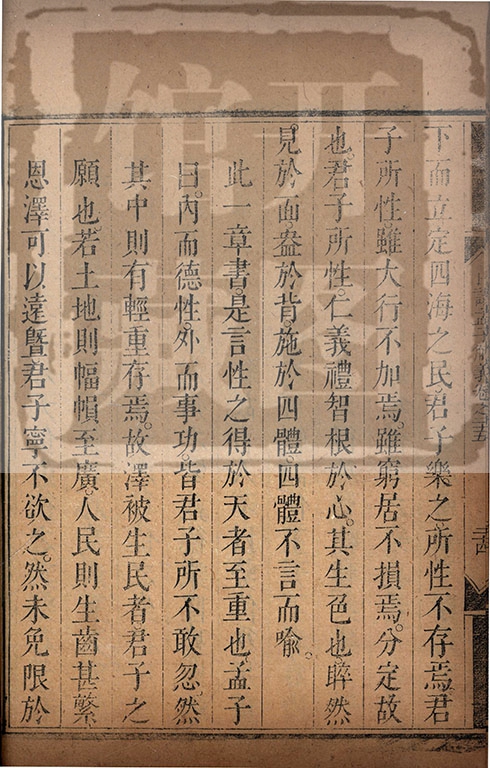 下而立定四海之民君子樂之所性不存焉君
子所性雖大行不加焉雖窮居不損焉分定故
也君子所性仁義禮智根於心其生色也睟然
見於面盎於背施於四體四體不言而喻
此一章書是言性之得於天者至重也孟子
曰內而德性外而事功皆君子所不敢忽然
其中則有輕重存焉故澤被生民者君子之
願也若土地則幅幀至廣人民則生齒甚繁
恩澤可以遠曁君子寧不欲之然未免限於